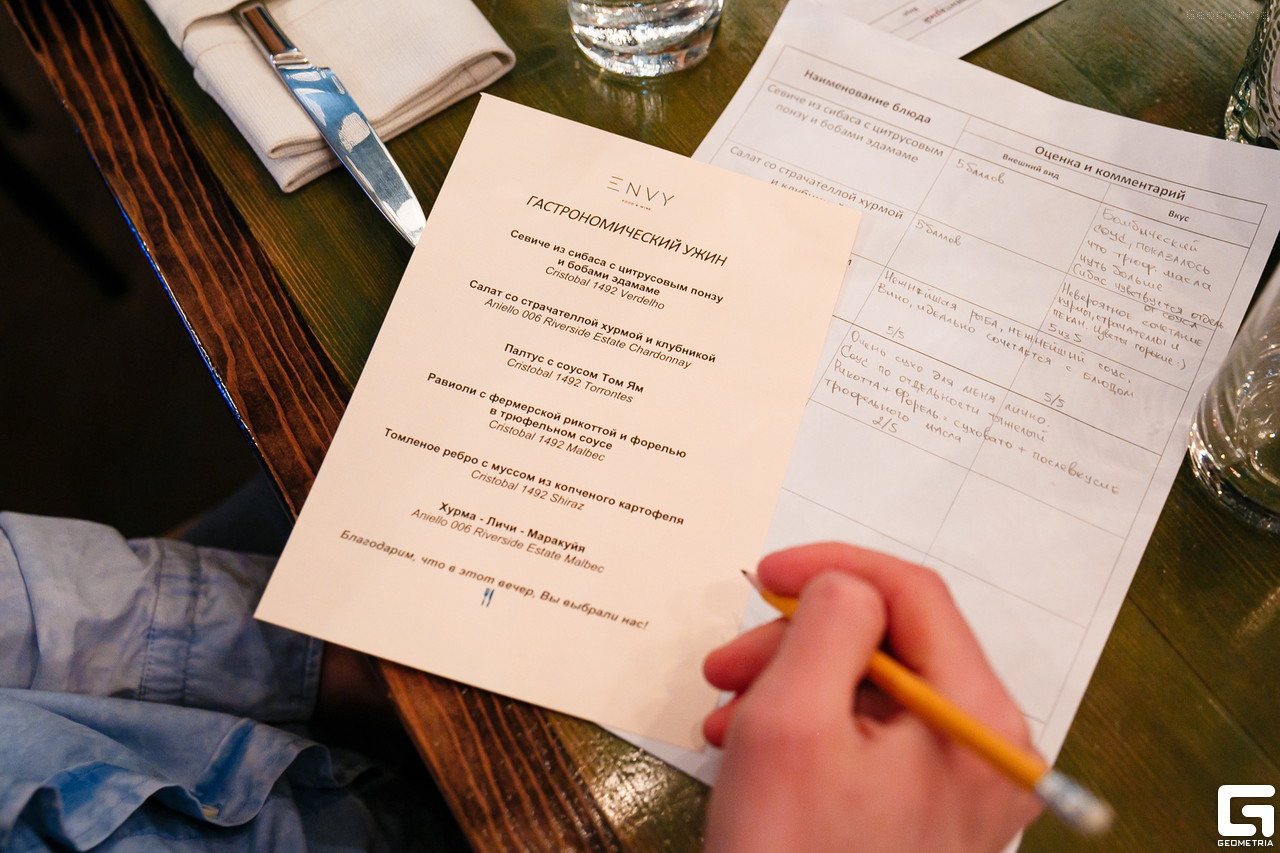 ENVY
ГАСТРОНОМИЧЕСКИЙ УЖИН
Севиче из сибаса с цитрусовым понзу
и бобами эдамаме
Cristobal 1492 Verdelho
Салат со страчателлой хурмой и клубникой
Aniello 006 Riverside Estate Chardonnay
Палтус с соусом Том Ям
Cristobal 1492 Torrontes
Равиоли с фермерской рикоттой и форелью
в трюфельном соусе
Cristobal 1492 Malbec
Томленое ребро с муссом из копченого картофеля
Cristobal 1492 Shiraz
Хурма - Личи - Маракуйя
Aniello 006 Riverside Estate Malbec
Благодарим, что в этот вечер, Вы выбрали нас!
Наименование блюда
Оценка и комментарий
Внешний вид
Вкус
Севиче из сибаса с цитрусовым
понзу и бобами эдамаме
5 баллов
соус, показалось
что трюф. масла
чуть больше
Сибас чувствуется отдель
от соуса
Салат со страчателлой хурмой
5 баллов
Невероятное сочетание
хурмы, страчателлы и
пекан. Цветы горькие:)
5 из 5
Нежнейшая рыба, нежнейший соус.
Вино, идеально сочетается с блюдом
5/5
5/5
Очень сухо для меня лично.
Соус по отдельности тяжелый
Рикотта + форель = суховато + послевкусие
трюфельного масла
2/5
GEOMETRIA